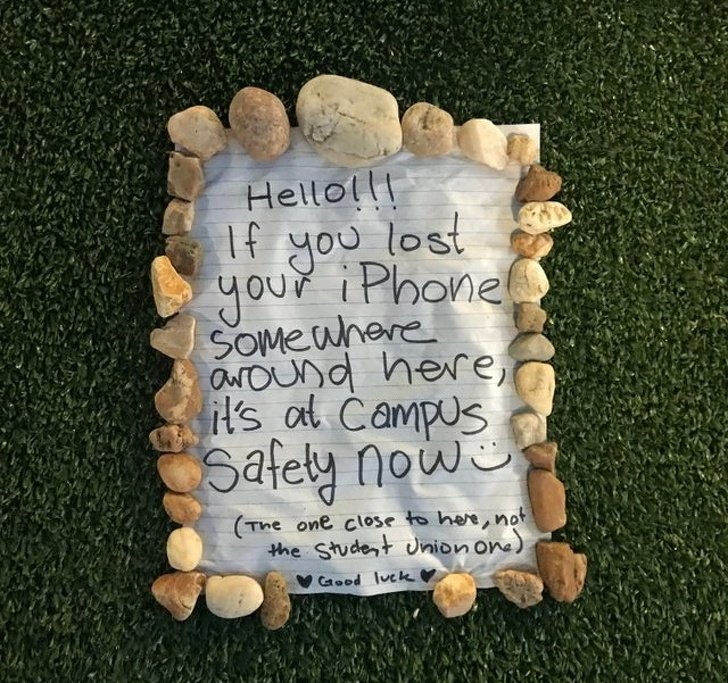 Hello!!!
If you lost
your iPhone
somewhere
around here,
it's at Campus
Safety now :)
(The one close to here, not
the Student Union one)
♥ Good luck ♥